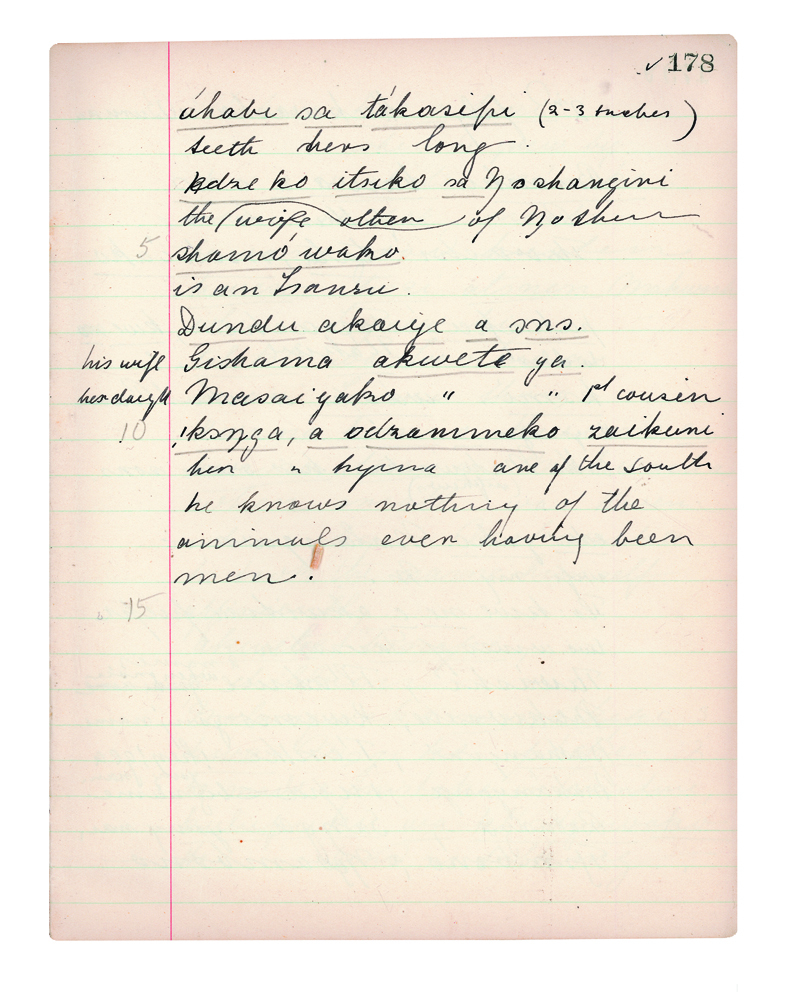 ✓178
áhabi sa tákasipi (2-3 inches)
teeth hers long.
kdzeko itsiko sa Noshangini
the (wife other) of Noshan
5 shamó wako.
is an Isanzu.
Dundu akaiye a sns.
his wife Gishama akwete ya.
her daugh Masaiyako " " 1st cousin
10 !ksnga, a odzammeko zaikuni
her " hyena are of the south
he knows nothing of the
animals ever having been
men.
15